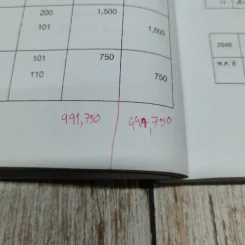 200
1,500
101
1,500
101
750
110
750
991,750
991,750
2549